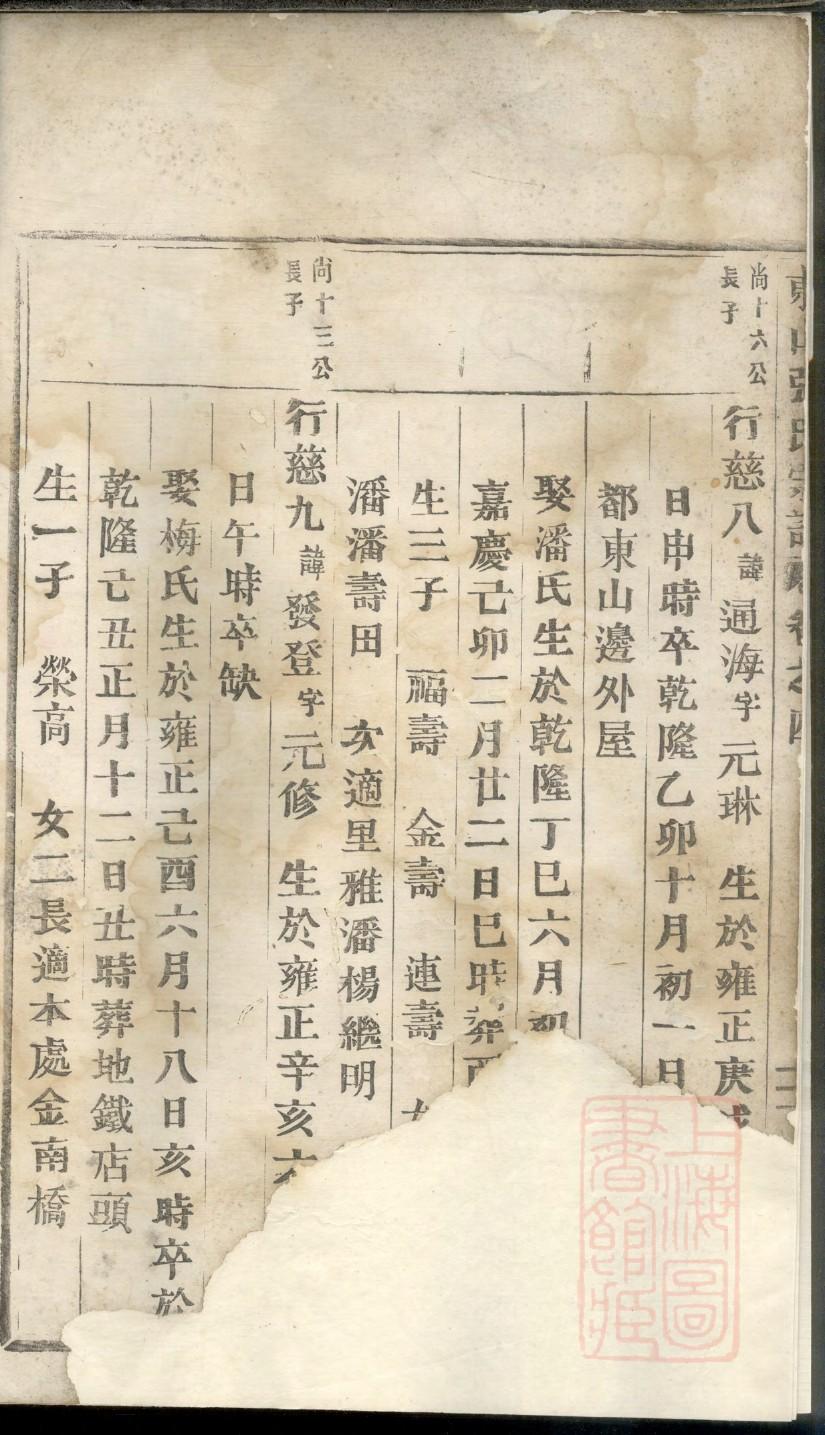 尚十六公
長子
行慈八諱通海字元琳 生於雍正庚戌
日申時卒乾隆乙卯十月初一日
都東山邊外屋
娶潘氏生於乾隆丁巳六月初
嘉慶己卯二月廿二日巳時葬西
生三子 福壽 金壽 連壽 女
潘潘壽田 次適里雅潘楊繼明
尚十三公
長子
行慈九諱發登字元修 生於雍正辛亥六
日午時卒缺
娶梅氏生於雍正己酉六月十八日亥時卒於
乾隆己丑正月十二日丑時葬地鐵店頭
生一子 榮高 女二長適本處金南橋
上海圖
書館藏